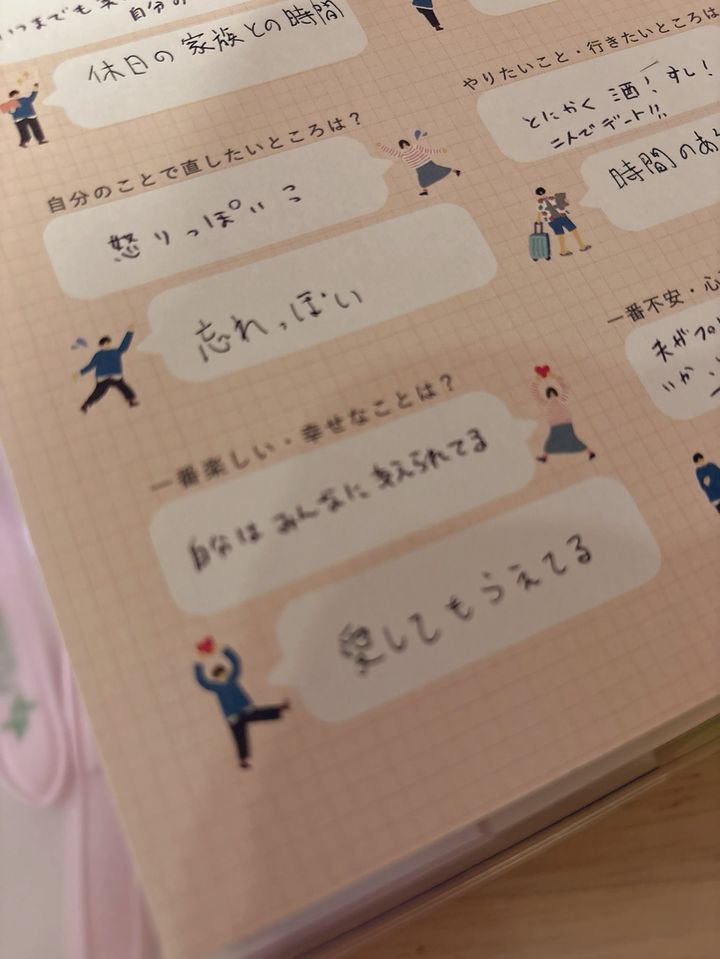 いつまでも
自分の
休日の家族との時間
自分のことで直したいところは？
怒りっぽいこ
忘れっぽい
一番楽しい・幸せなことは？
自分はみんなに支えられてる
愛してもらえてる
やりたいこと・行きたいところは
とにかく酒！すし！
二人でデート!!
時間のあ
一番不安・心
夫がプロ
いか